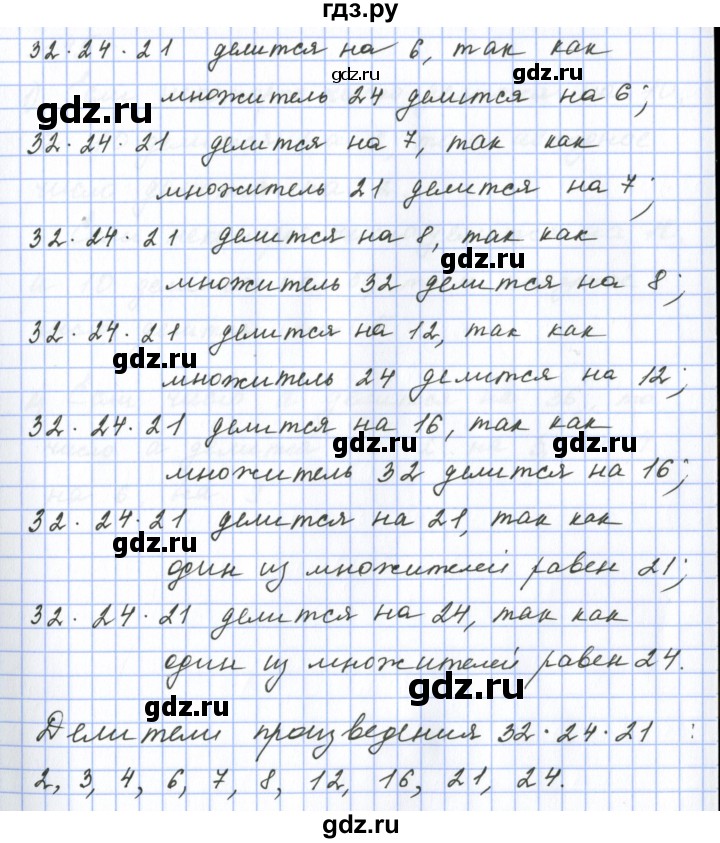 гдз.ру
32·24·21 делится на 6, так как
gdz.ru
gdz.ru
множитель 24 делится на 6;
gdz.ru
32·24·21 делится на 7, так как
множитель 21 делится на 7;
32·24·21 делится на 8, так как
gdz.ru
множитель 32 делится на 8;
32·24·21 делится на 12, так как
gdz.ru
множитель 24 делится на 12;
32·24·21 делится на 16, так как
gdz.ru
gdz.ru
множитель 32 делится на 16;
32·24·21 делится на 21, так как
gdz.ru
один из множителей равен 21;
32·24·21 делится на 24, так как
один из множителей равен 24.
gdz.ru
gdz.ru
Делители произведения 32·24·21 :
2, 3, 4, 6, 7, 8, 12, 16, 21, 24.
gdz.ru
gdz.ru
gdz.ru